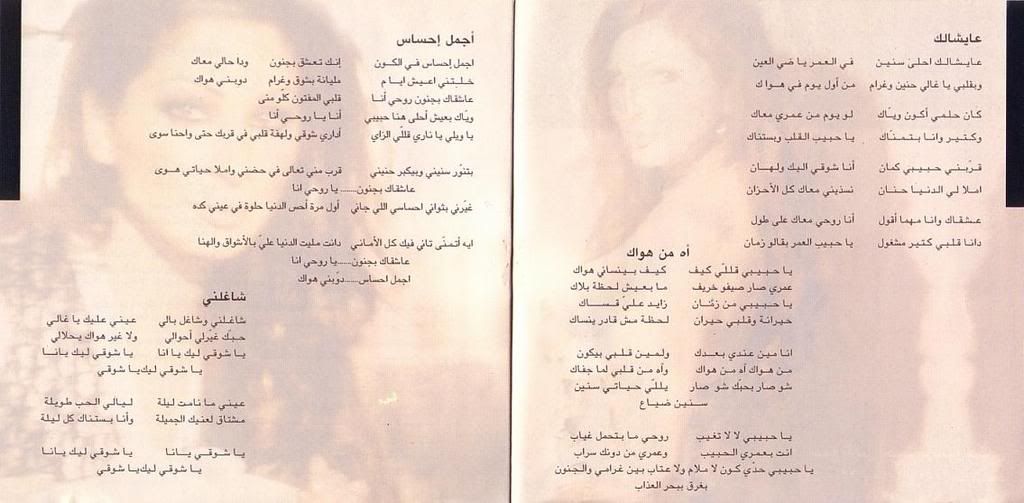 عايشالك
عايشالك احلى سنين في العمر يا ضي العين
وبقلبي يا غالي حنين وغرام من أول يوم في هواك
كان حلمي أكون ويّاك لو يوم من عمري معاك
وكتير وانا بتمنّاك يا حبيب القلب وبستناك
قرّبني حبيبي كمان أنا شوقي اليك ولهان
املا لي الدنيا حنان نسّيني معاك كل الأحزان
عشقاك وانا مهما أقول أنا روحي معاك على طول
دانا قلبي كتير مشغول يا حبيب العمر بقالو زمان
أه من هواك
يا حبيبي قللي كيف كيف بينساني هواك
عمري صار صيفو خريف ما بعيش لحظة بلاك
يا حبيبي من زمان زايد عليّ قساك
حيرانة وقلبي حيران لحظة مش قادر ينساك
انا مين عندي بعدك ولمين قلبي بيكون
من هواك أه من هواك وأه من قلبي لما جفاك
شو صار بحبك شو صار يللي حياتي سنين
سنين ضياع
يا حبيبي لا لا تغيب روحي ما بتحمل غياب
انت بعمري الحبيب وعمري من دونك سراب
يا حبيبي حدّي كون لا ملام ولا عتاب بين غرامي والجنون
بغرق ببحر العذاب
أجمل إحساس
اجمل إحساس في الكون إنك تعشق بجنون ودا حالي معاك
خلتني اعيش ايام مليانة بشوق وغرام دوبني هواك
عاشقاك بجنون روحي أنا قلبي المفتون كلّو منى
ويّاك بعيش أحلى هنا حبيبي أنا يا روحي أنا
يا ويلي يا ناري قللّي الزاي أداري شوقي ولهفة قلبي في قربك حتى واحنا سوى
بتنوّر سنيني وبيكبر حنيني قرب مني تعالى في حضني واملا حياتي هوى
عاشقاك بجنون...... يا روحي انا
غيّرني بثواني احساسي اللي جاني أول مرة أحس الدنيا حلوة في عيني كده
ايه أتمنّى تاني فيك كل الأماني دانت مليت الدنيا عليّ بالأشواق والهنا
عاشقاك بجنون......يا روحي انا
اجمل احساس......دوّبني هواك
شاغلني
شاغلني وشاغل بالي عيني عليك يا غالي
حبّك غيّرلي أحوالي ولا غير هواك يحلالي
يا شوقي ليك يا انا يا شوقي ليك يانا
يا شوقي ليك يا شوقي
عيني ما نامت ليلة ليالي الحب طويلة
مشتاق لعنيك الجميلة وأنا بستناك كل ليلة
يا شوقي يانا يا شوقي ليك يانا
يا شوقي ليك يا شوقي